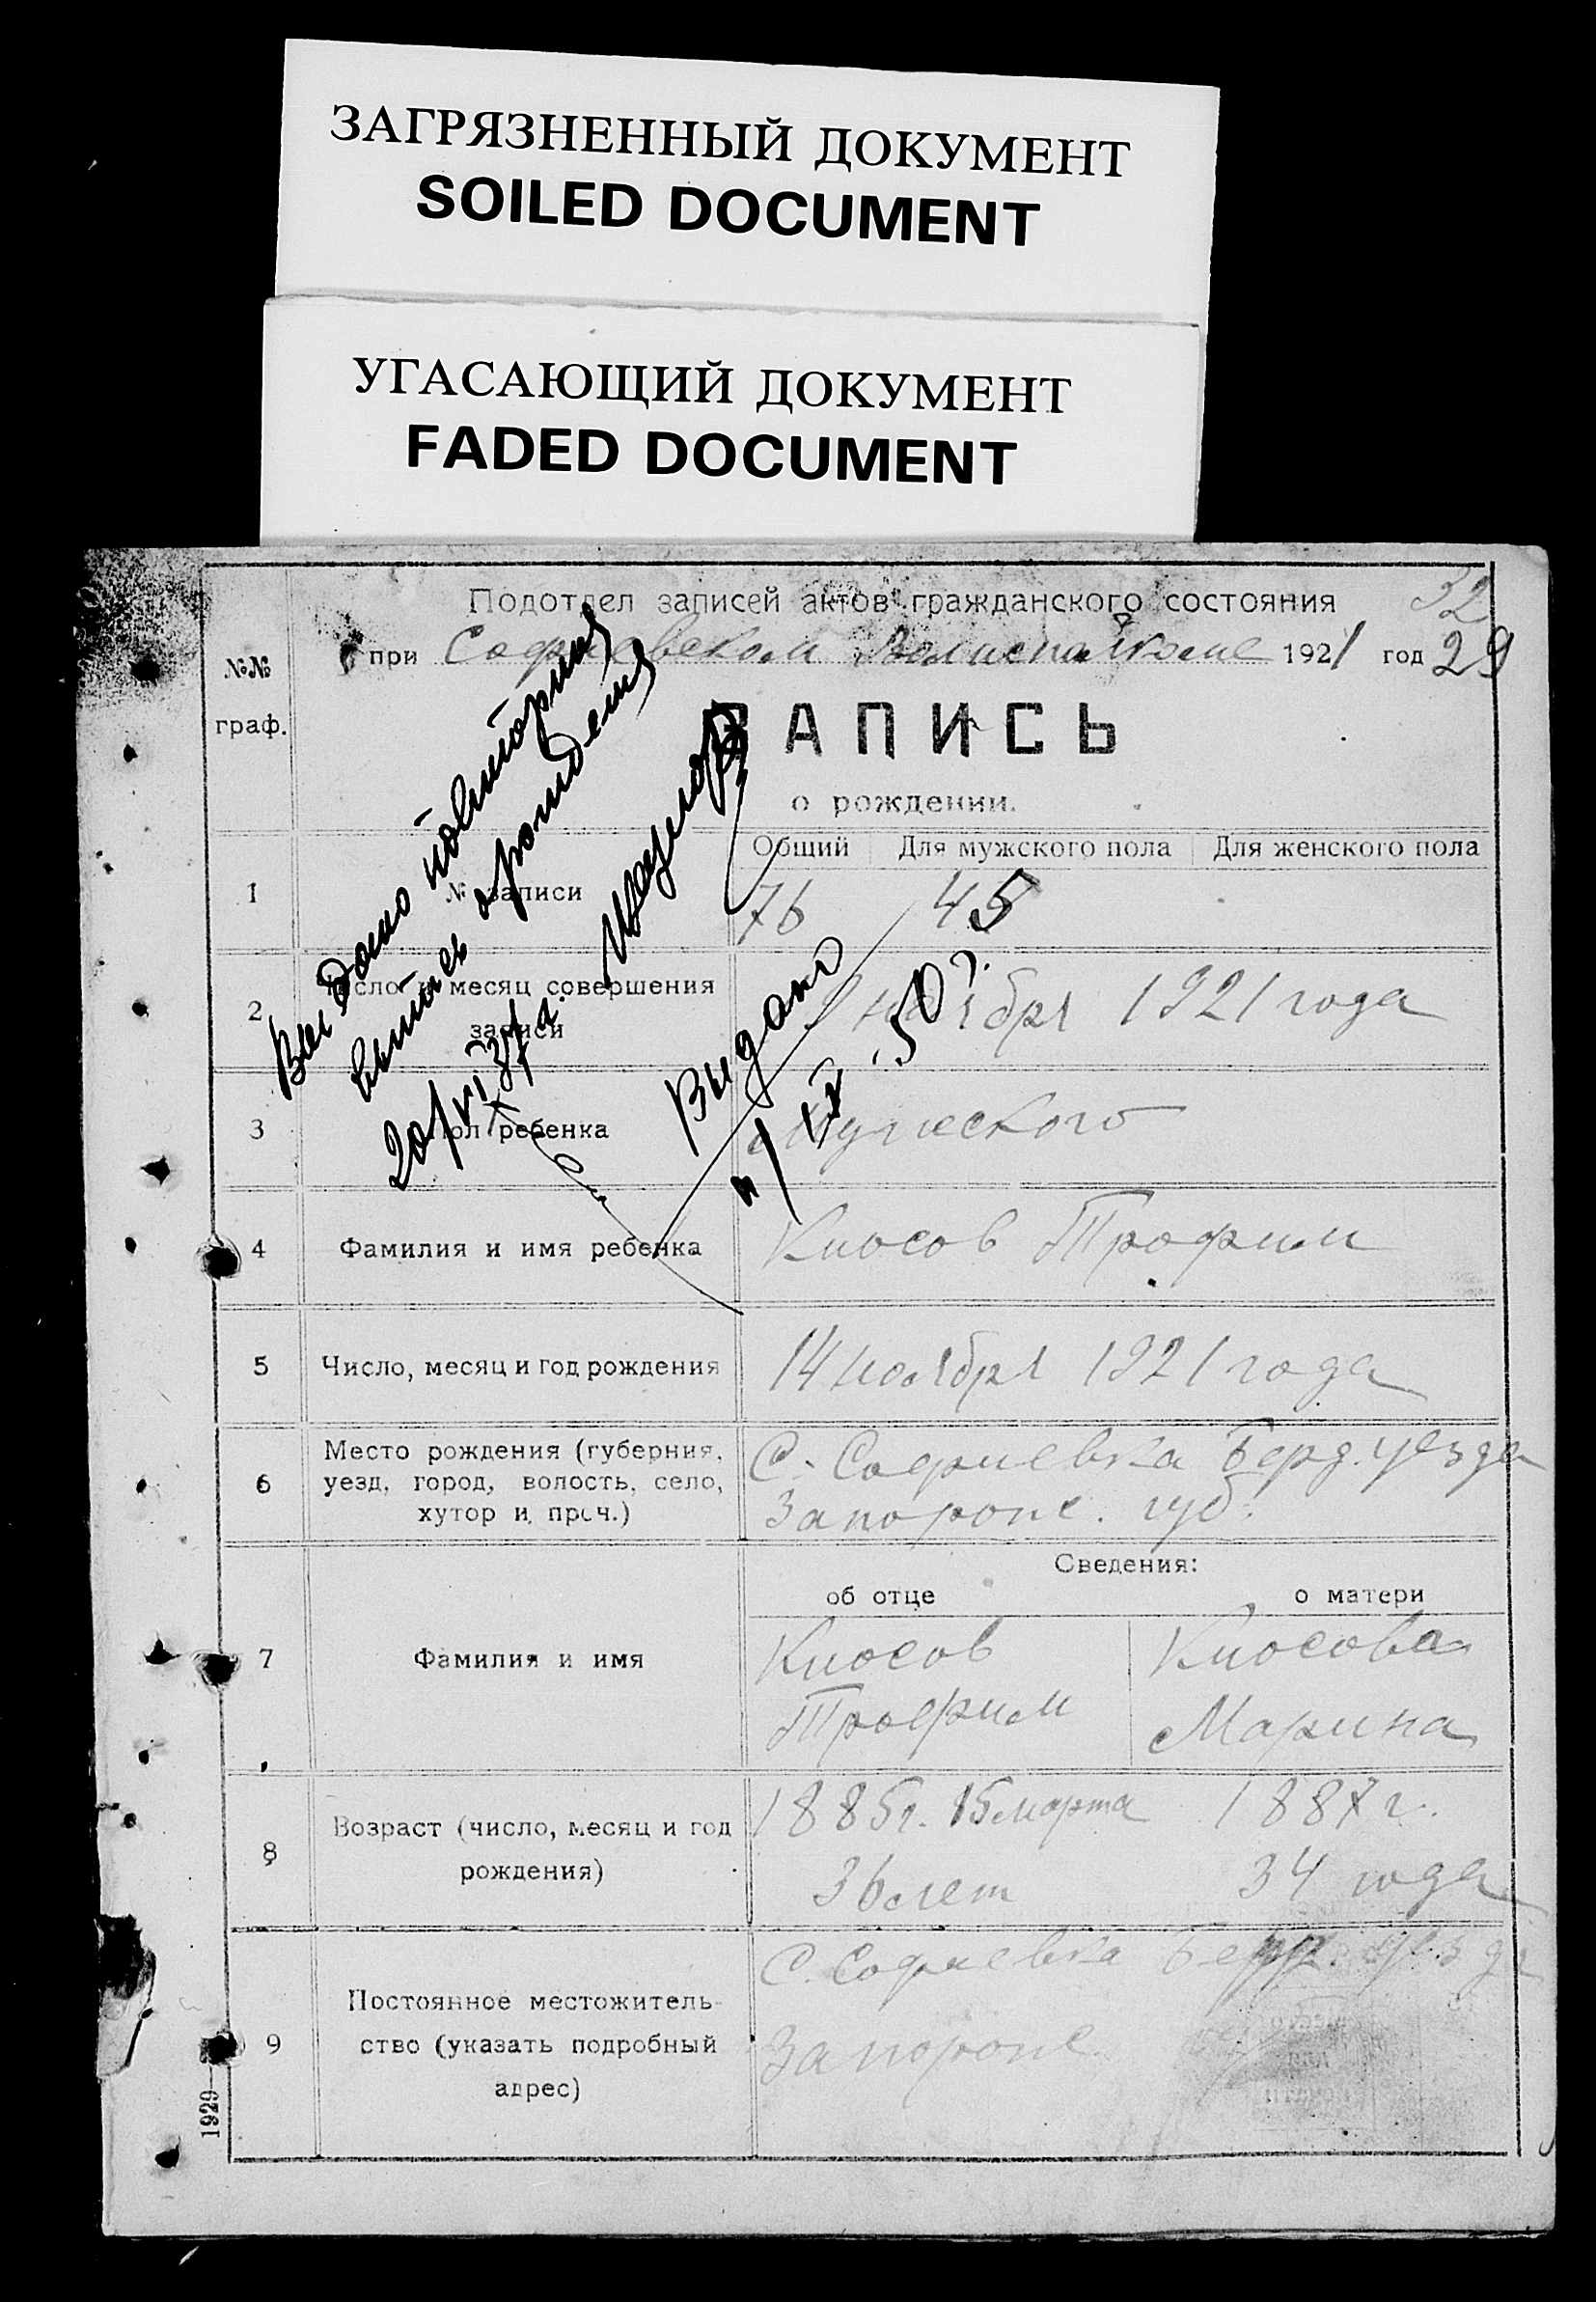 ЗАГРЯЗНЕННЫЙ ДОКУМЕНТ
SOILED DOCUMENT
УГАСАЮЩИЙ ДОКУМЕНТ
FADED DOCUMENT
Подотдел записей актов гражданского состояния 32
при Софиевском 1921 год 29
№№ граф.
ЗАПИСЬ
о рождении.
Общий Для мужского пола Для женского пола
1 № записи 76 45
2 Число и месяц совершения
записи ноября 1921 года
3 Пол ребенка Мужеского
4 Фамилия и имя ребенка Кносов Трофим
5 Число, месяц и год рождения 14 ноября 1921 года
6 Место рождения (губерния,
уезд, город, волость, село,
хутор и проч.)
С. Софиевка Берд. уезда
Запорож. губ.
Сведения:
об отце о матери
7 Фамилия и имя
Кносов Кносова
Трофим Марина
8 Возраст (число, месяц и год
рождения)
1885 г. 15 марта 1887 г.
36 лет 34 года
9 Постоянное местожитель-
ство (указать подробный
адрес)
С. Софиевка Берд. уезда
Запорож.
1929
Выдано повторная
выпись о рождении
20/VI 37 г.
Выдано
4/IX 50 г.